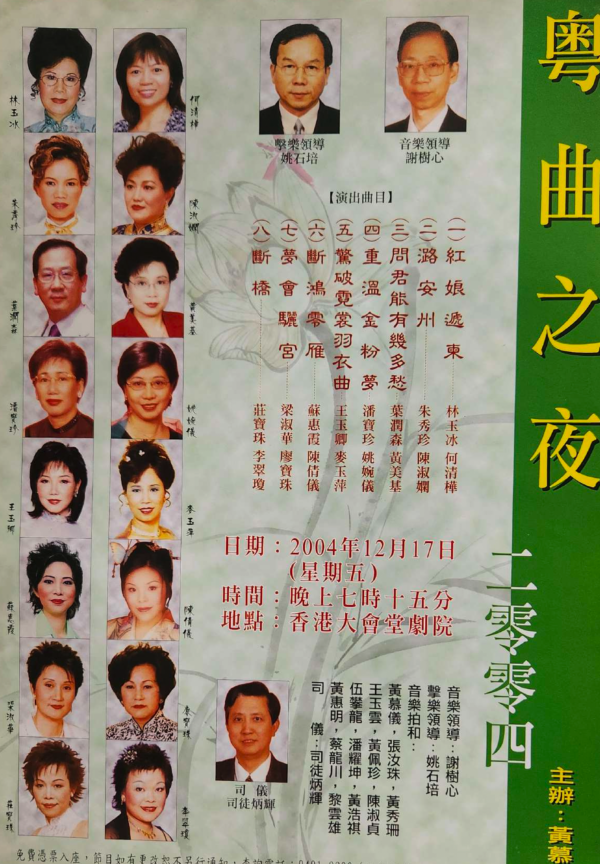 粵曲之夜
二零零四
主辦：黃慕
林玉冰
何清樺
朱秀珍
陳淑嫻
葉潤森
黃美基
潘寶珍
姚婉儀
王玉卿
麥玉萍
蘇惠霞
陳倩儀
梁淑華
廖寶珠
莊寶珠
李翠瓊
擊樂領導
姚石培
音樂領導
謝樹心
【演出曲目】
(一)紅娘遞柬 林玉冰 何清樺
(二)潞安州 朱秀珍 陳淑嫻
(三)問君能有幾多愁 葉潤森 黃美基
(四)重溫金粉夢 潘寶珍 姚婉儀
(五)驚破霓裳羽衣曲 王玉卿 麥玉萍
(六)斷鴻零雁 蘇惠霞 陳倩儀
(七)夢會驪宮 梁淑華 廖寶珠
(八)斷橋 莊寶珠 李翠瓊
日期：2004年12月17日
(星期五)
時間：晚上七時十五分
地點：香港大會堂劇院
音樂領導：謝樹心
擊樂領導：姚石培
音樂拍和：
黃慕儀，張汝珠，黃秀珊
王玉雲，黃佩珍，陳淑貞
伍攀龍，潘耀坤，黃浩祺
黃惠明，蔡龍川，黎雲雄
司 儀：司徒炳輝
司 儀
司徒炳輝
免費憑票入座，節目如有更改恕不另行通知，查詢電話：